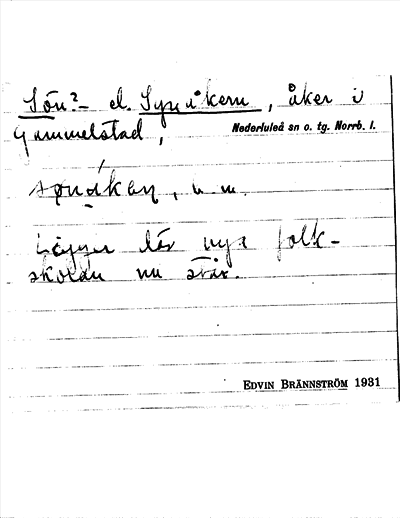 Sön?- el. Synåkern, åker i
Gammelstad,
Nederluleå sn o. tg. Norrb. l.
sønåken, n. m.
Ligger där nya folk-
skolan nu står.
EDVIN BRÄNNSTRÖM 1931